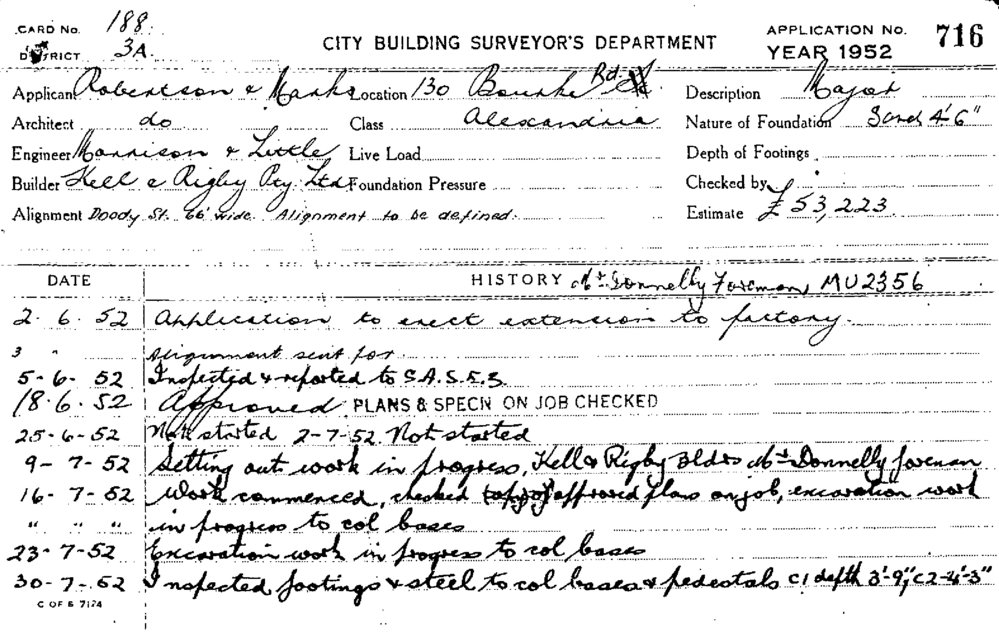 CARD No. 188
DISTRICT 3A.
CITY BUILDING SURVEYOR'S DEPARTMENT
APPLICATION No. 716
YEAR 1952
Applicant Robertson & Marks Location 130 Bourke Rd. Description Major
Architect do Class Alexandria Nature of Foundation Sand 4'-6"
Engineer Morrison & Little Live Load Depth of Footings
Builder Kell & Rigby Pty Ltd Foundation Pressure Checked by
Alignment Doody St. 66' wide. Alignment to be defined. Estimate £53,223
DATE HISTORY Mr. Donnelly Foreman MU2356
2.6.52 Application to erect extension to factory.
3 " Alignment sent for
5-6-52 Inspected & reported to S.A.S.E.B.
18.6.52 Approved PLANS & SPECN ON JOB CHECKED
25-6-52 Not started 2-7-52. Not started
9-7-52 Setting out work in progress, Kell & Rigby Bldrs Mr Donnelly foreman
16-7-52 Work commenced, checked approved plans on job, excavation work
" " " in progress to col bases
23-7-52 Excavation work in progress to col bases
30-7-52 Inspected footings & steel to col bases & pedestals C1 depth 3'-9", C2-4'-3"
C OF S 7174